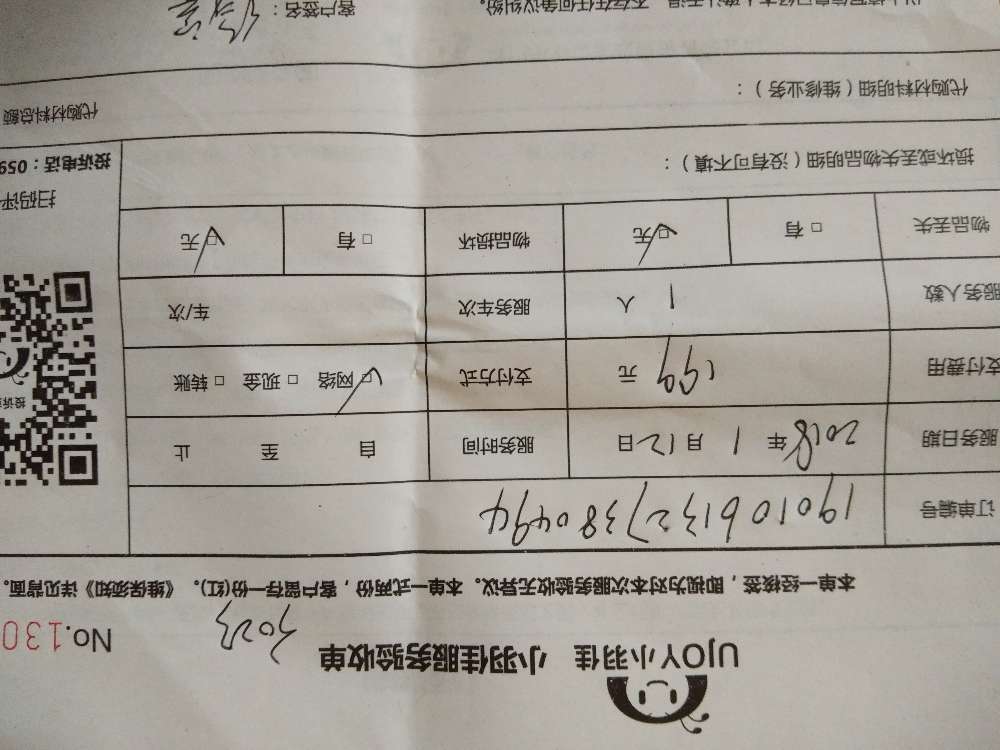 UJOY小羽佳 小羽佳服务验收单
No.130
本单一经核签，即视为对本次服务验收无异议。本单一式两份，客户留存一份(红)。《维保须知》详见背面。
订单编号 1901061327380494
服务日期 2018年 1 月 12 日 服务时间 自 至 止
支付费用 199 元 支付方式 ☑网络 □现金 □转账
服务人数 1 人 服务车次 车/次
物品丢失 □有 ☑无 物品损坏 □有 ☑无
投诉
扫码评
损坏或丢失物品明细（没有可不填）：
投诉电话：059
代购材料明细（维修业务）：
代购材料总额
客户签名：